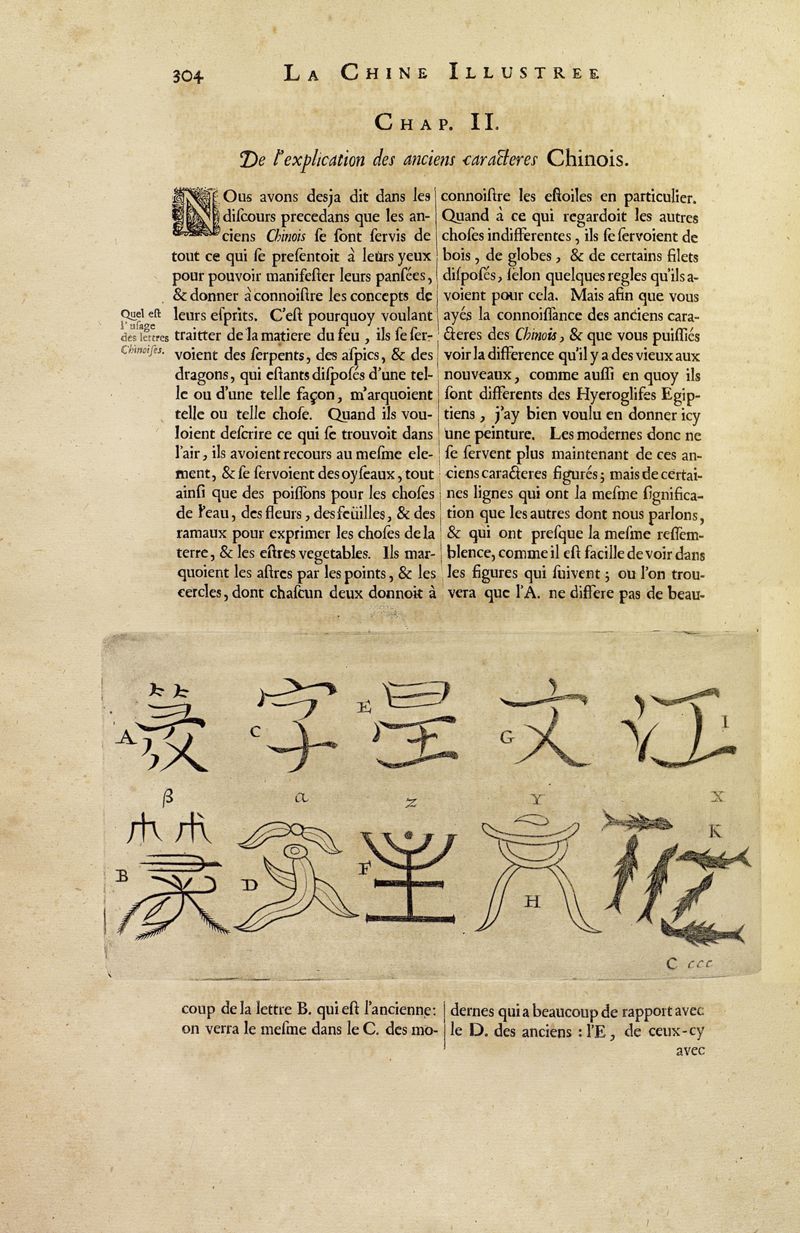 304
LA CHINE ILLUSTREE
CHAP. II.
De l'explication des anciens caracteres Chinois.
NOus avons desja dit dans les
diſcours precedans que les an-
ciens Chinois ſe ſont ſervis de
tout ce qui ſe preſentoit à leurs yeux
pour pouvoir manifeſter leurs panſées,
& donner à connoiſtre les concepts de
leurs eſprits. C'eſt pourquoy voulant
traitter de la matiere du feu, ils ſe ſer-
voient des ſerpents, des aſpics, & des
dragons, qui eſtants diſpoſés d'une tel-
le ou d'une telle façon, m'arquoient
telle ou telle choſe. Quand ils vou-
loient deſcrire ce qui ſe trouvoit dans
l'air, ils avoient recours au meſme ele-
ment, & ſe ſervoient des oyſeaux, tout
ainſi que des poiſſons pour les choſes
de l'eau, des fleurs, des feüilles, & des
ramaux pour exprimer les choſes de la
terre, & les eſtres vegetables. Ils mar-
quoient les aſtres par les points, & les
cercles, dont chaſcun deux donnoit à
Quel eſt
l'uſage
des lettres
Chinoiſes.
connoiſtre les eſtoiles en particulier.
Quand à ce qui regardoit les autres
choſes indifferentes, ils ſe ſervoient de
bois, de globes, & de certains filets
diſpoſés, ſelon quelques regles qu'ils a-
voient pour cela. Mais afin que vous
ayés la connoiſſance des anciens cara-
cteres des Chinois, & que vous puiſſiés
voir la difference qu'il y a des vieux aux
nouveaux, comme auſſi en quoy ils
ſont differents des Hyeroglifes Egip-
tiens, j'ay bien voulu en donner icy
une peinture. Les modernes donc ne
ſe ſervent plus maintenant de ces an-
ciens caracteres figurés; mais de certai-
nes lignes qui ont la meſme ſignifica-
tion que les autres dont nous parlons,
& qui ont preſque la meſme reſſem-
blence, comme il eſt facille de voir dans
les figures qui ſuivent; ou l'on trou-
vera que l'A. ne differe pas de beau-
A 篆 C 字 E G 文 I 江
β α Z Y X
B D F H K
C ccc
coup de la lettre B. qui eſt l'ancienne:
on verra le meſme dans le C. des mo-
dernes qui a beaucoup de rapport avec
le D. des anciens : l'E, de ceux-cy
avec